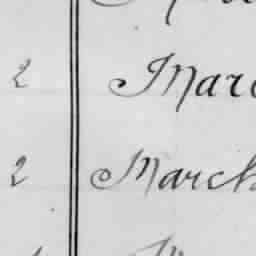 2 Marc
2 March